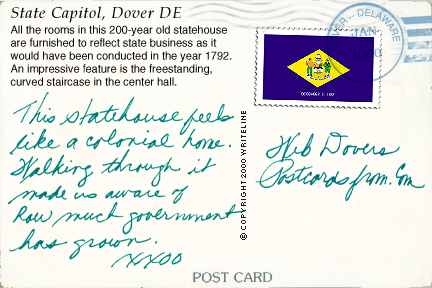 State Capitol, Dover DE
All the rooms in this 200-year old statehouse
are furnished to reflect state business as it
would have been conducted in the year 1792.
An impressive feature is the freestanding,
curved staircase in the center hall.
This statehouse feels
like a colonial home.
Walking through it
made us aware of
how much government
has grown.
XXOO
© COPYRIGHT 2000 WRITELINE
DELAWARE
JAN
DECEMBER 7, 1787
Web Dovers
Postcardsfrom.Com
POST CARD